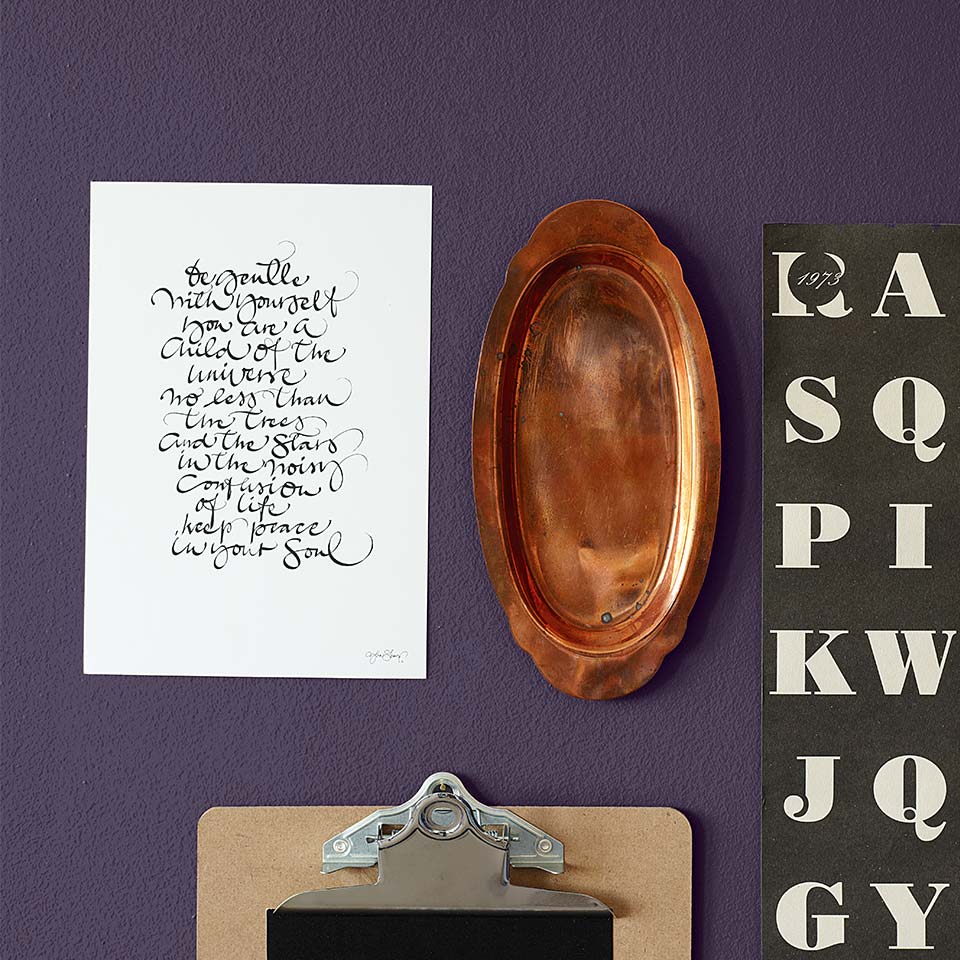 Be gentle
with yourself
you are a
Child of the
universe
no less than
the trees
and the Stars
in the noisy
Confusion
of life
keep peace
in your Soul
1973
R A
S Q
P I
K W
J Q
G Y